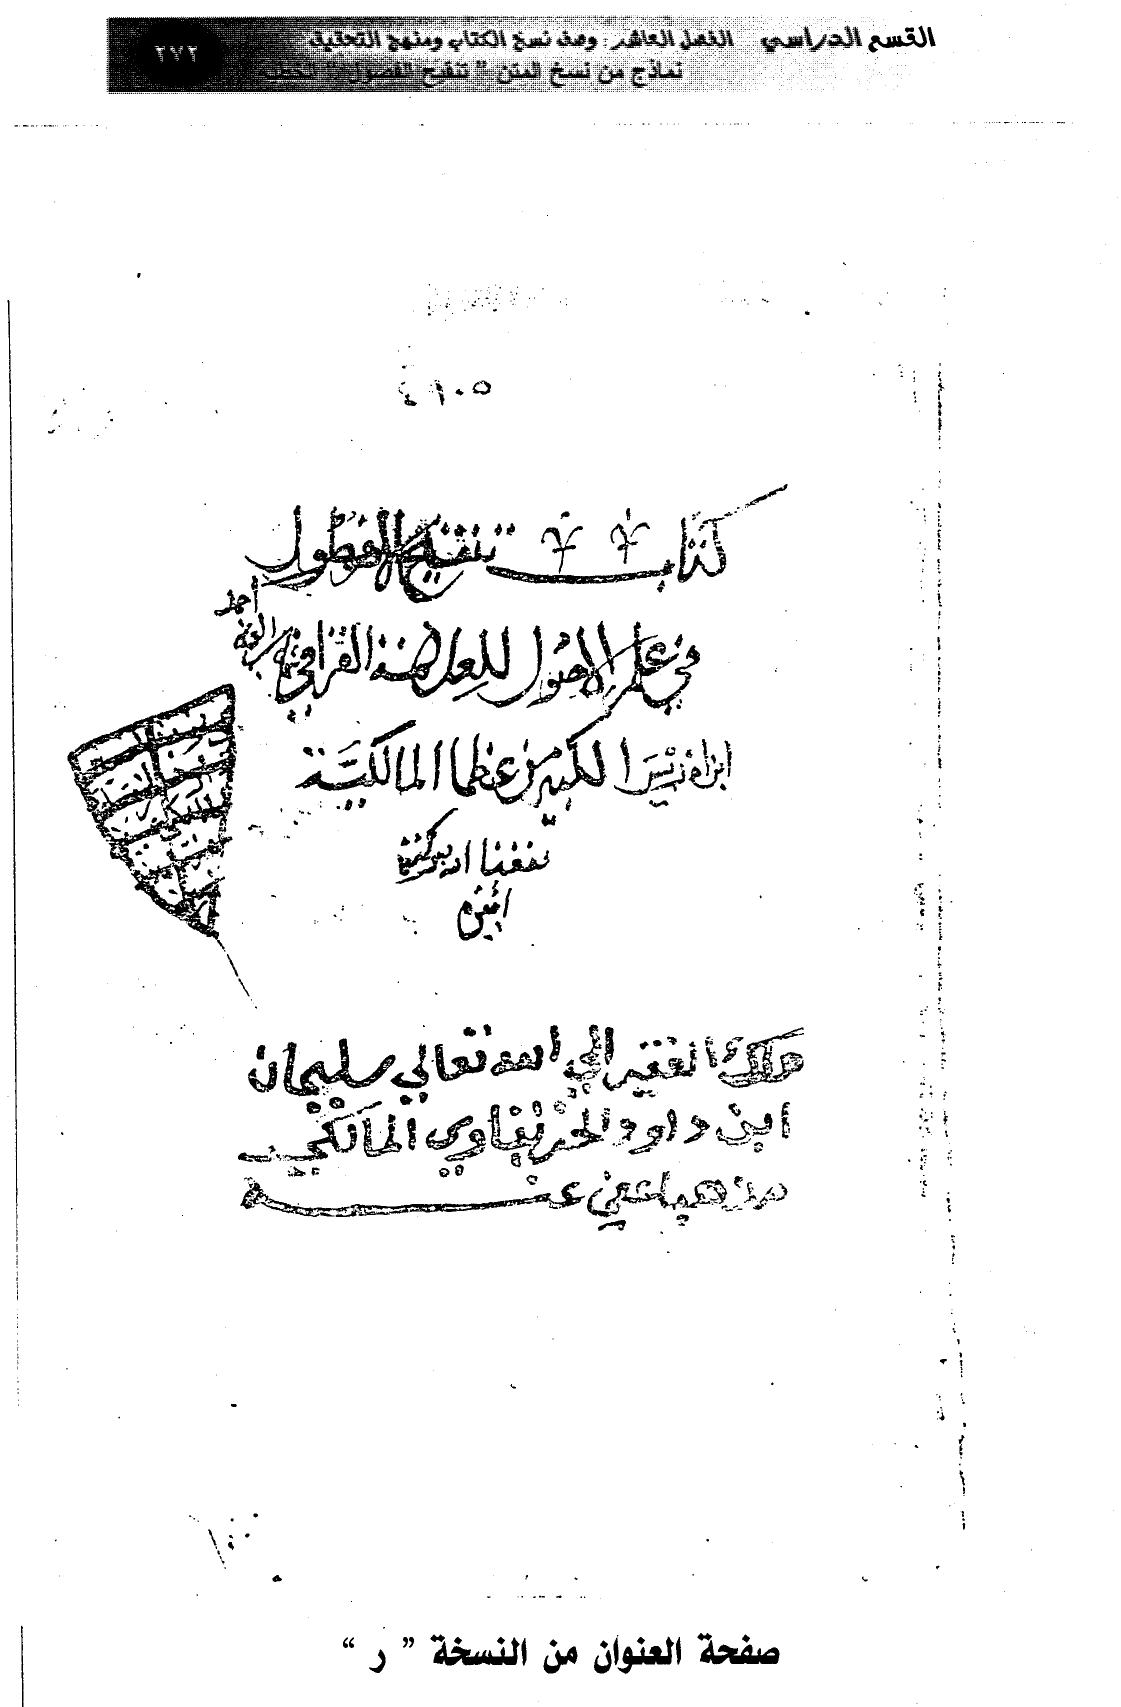 القسم الدراسي الفصل العاشر : وصف نسخ الكتاب ومنهج التحقيق ٢٧٢
نماذج من نسخ المتن " تنقيح الفصول " الخطية
كتاب تنقيح الفصول
في علم الاصول للعلامة القرافي أحمد
ابن ادريس الكبير من عظما المالكية
نفعنا الله ببركته
امين
ملك الفقير الي الله تعالي سليمان
ابن داود الخربتاوي المالكي
مذهبا عفي عنه
صفحة العنوان من النسخة " ر "